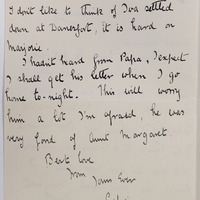 I don't like to think of Iva settled
down at Danesfort, it is hard on
Marjorie.
I hadn't heard from Papa, I expect
I shall get his letter when I go
home to-night. This will worry
him a lot I'm afraid, he was
very fond of Aunt Margaret.
Best love
from
Yours Ever